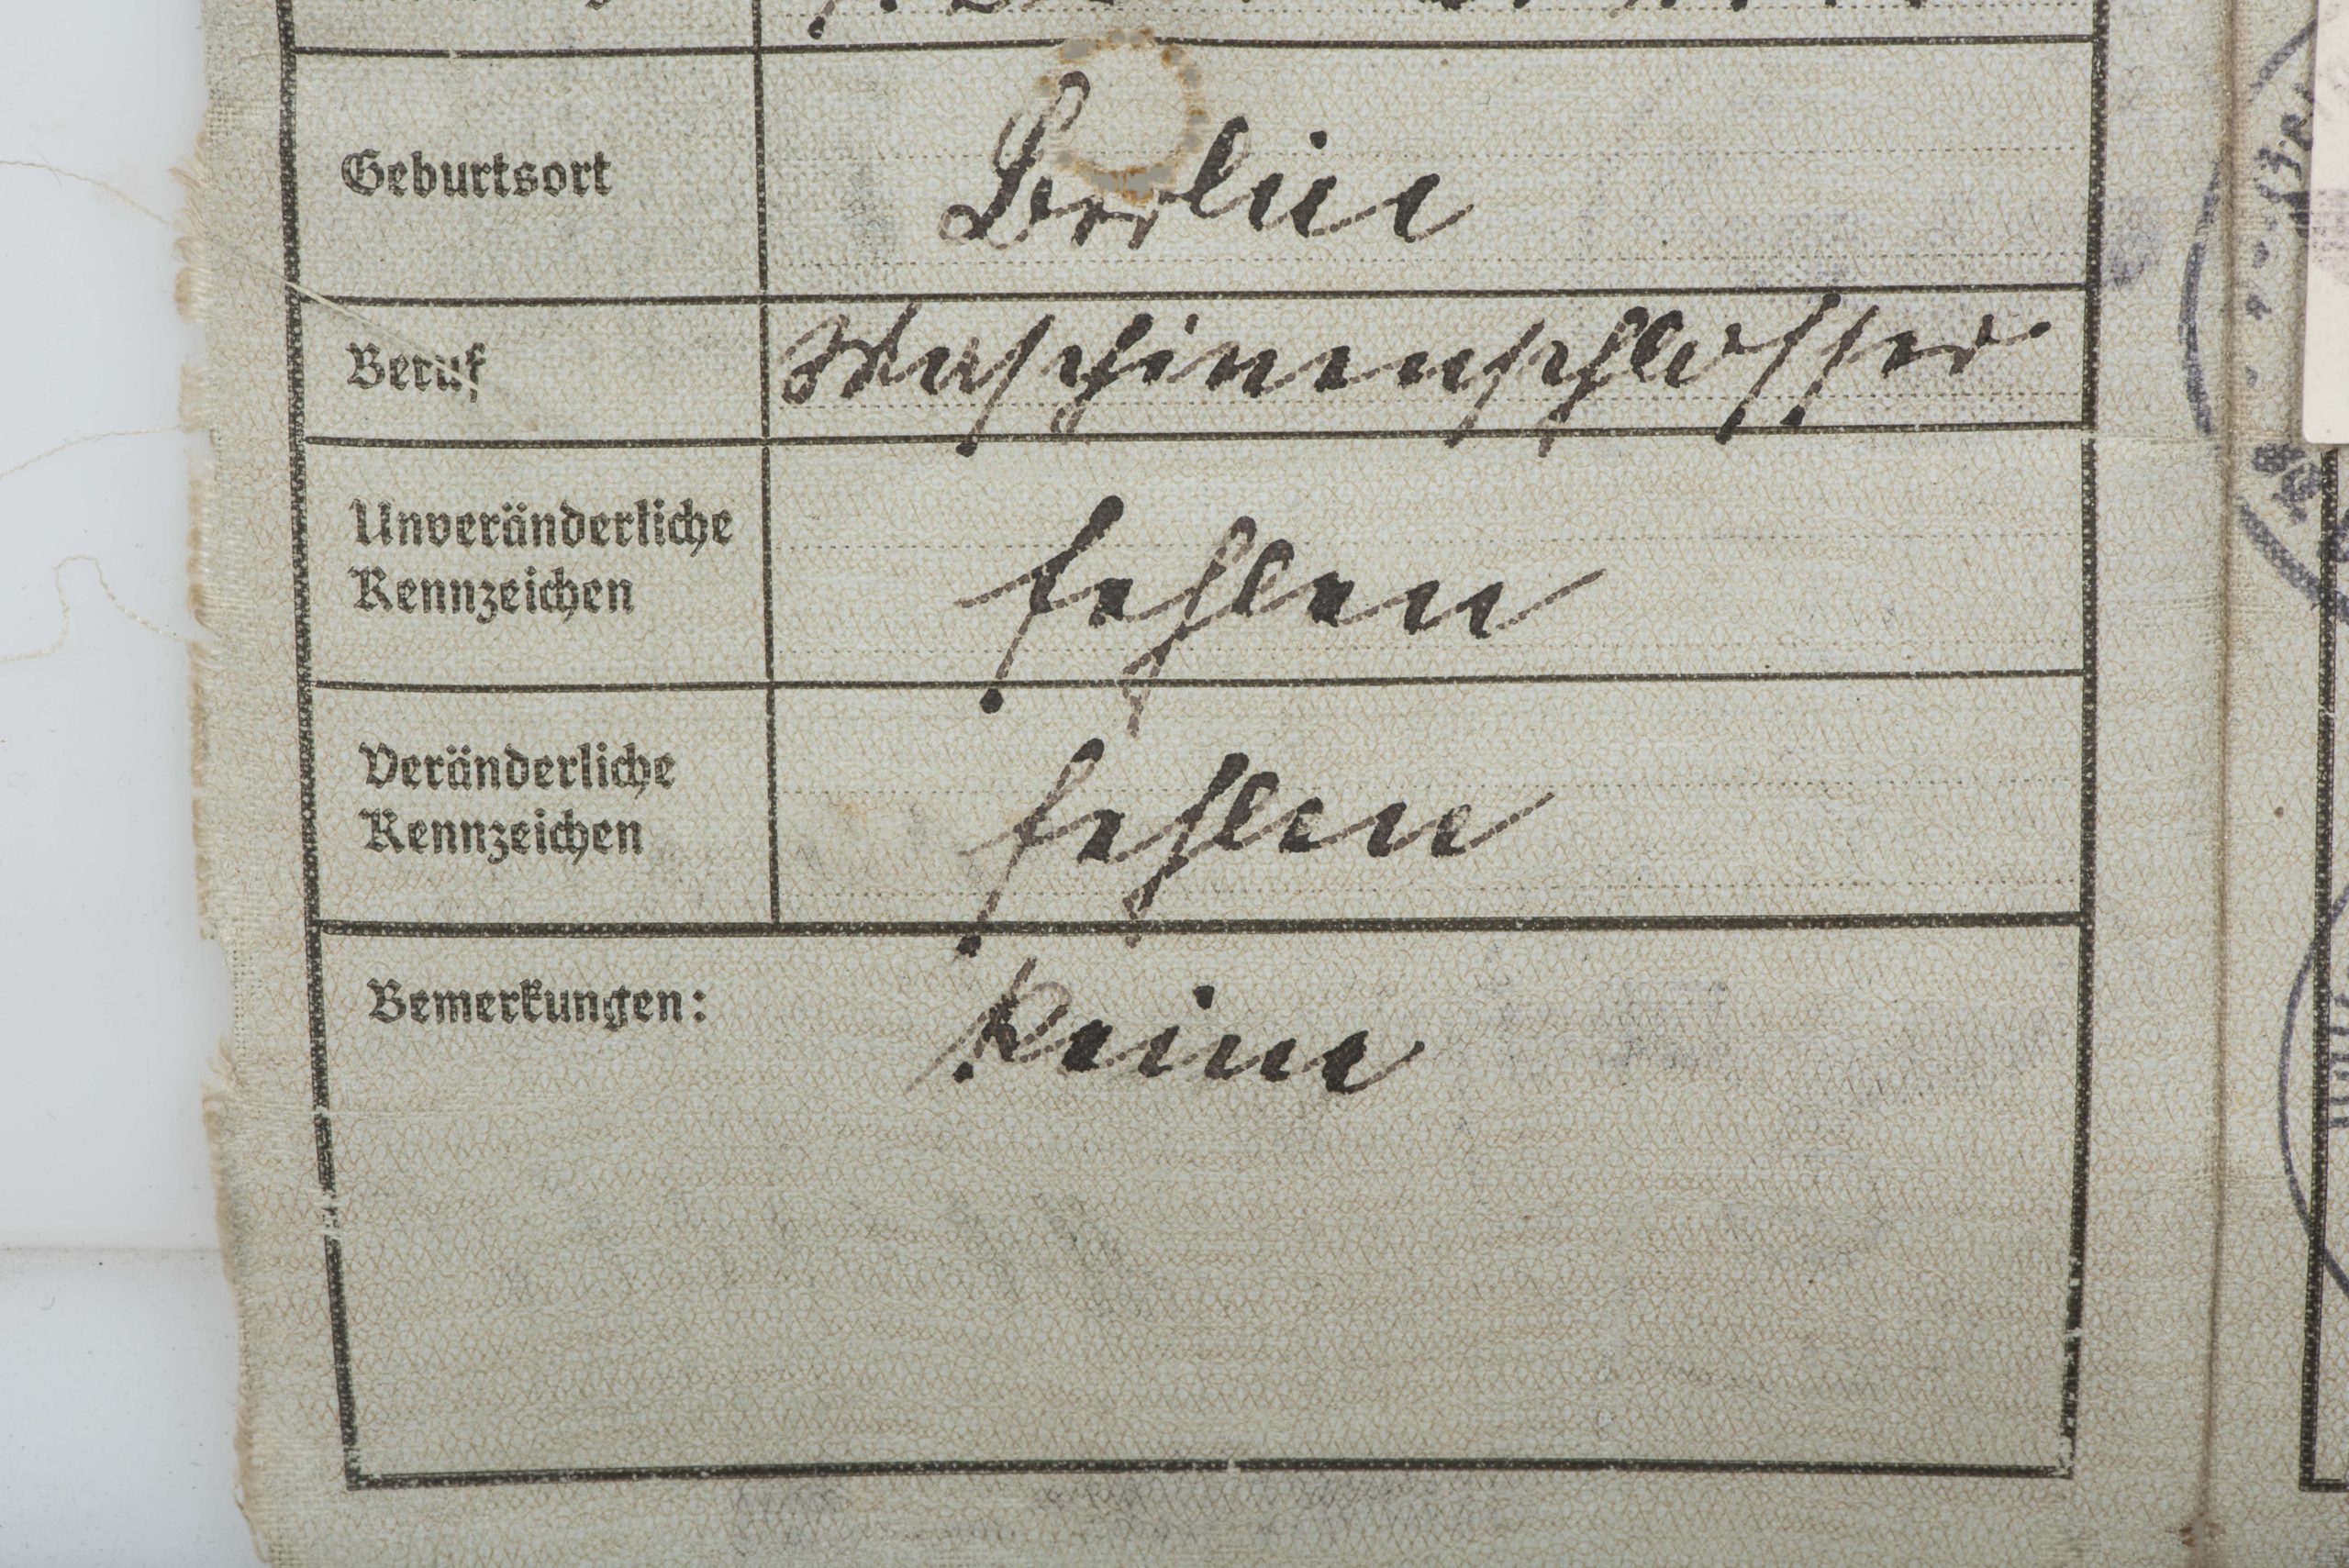 Geburtsort Berlin
Beruf Maschinenschlosser
Unveränderliche
Kennzeichen fehlen
Veränderliche
Kennzeichen fehlen
Bemerkungen: Keine